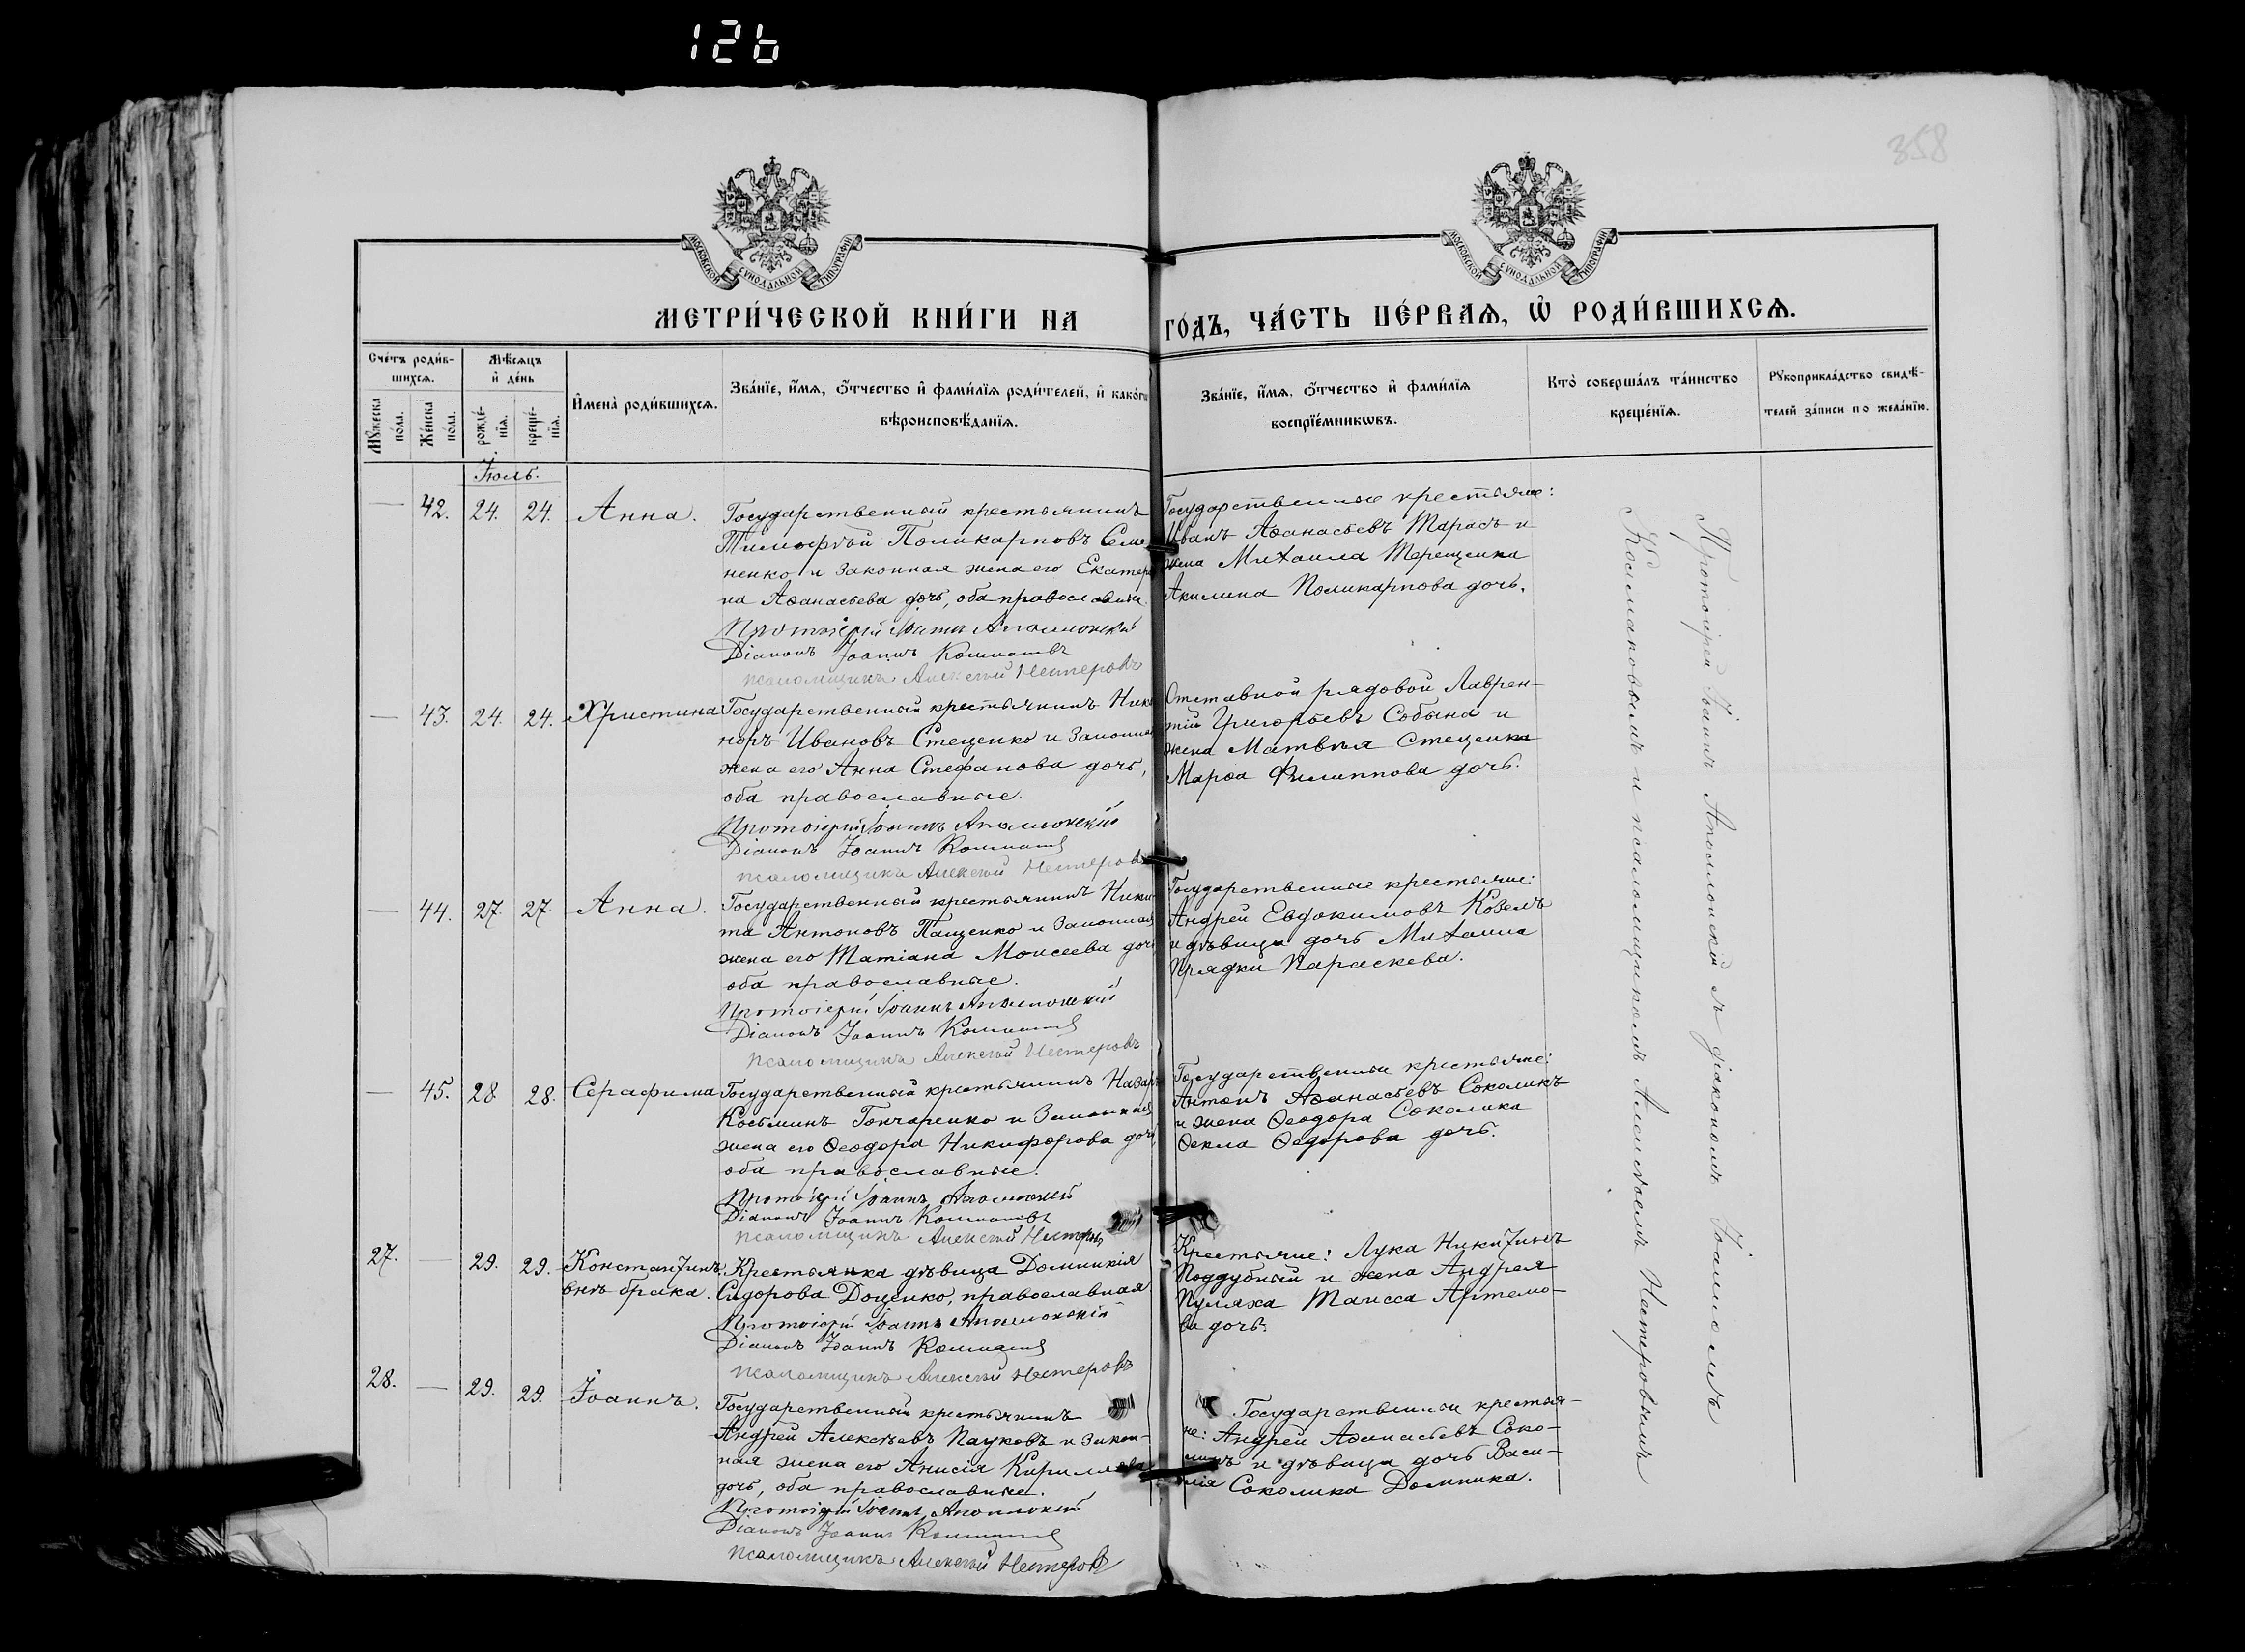 126
358
МОСКОВСКОЙ СѴНОДАЛЬНОЙ ТИПОГРАФІИ
МОСКОВСКОЙ СѴНОДАЛЬНОЙ ТИПОГРАФІИ
МЕТРИ́ЧЕСКОЙ КНИ́ГИ НА ГО́ДЪ, ЧА́СТЬ ПЕ́РВАѦ, Ѡ҆ РОДИ́ВШИХСѦ.
Сче́тъ роди́в-
шихсѧ.
Мꙋ́жеска по́ла.
Же́нска по́ла.
Мѣ́сѧцъ
и҆ де́нь
рожде́-
нїѧ.
креще́-
нїѧ.
И҆мена̀ роди́вшихсѧ.
Зва́нїе, и҆́мѧ, ѻ҆́тчество и҆ фами́лїѧ роди́телей, и҆ како́гѡ
вѣроисповѣ́данїѧ.
Зва́нїе, и҆́мѧ, ѻ҆́тчество и҆ фами́лїѧ
воспрїе́мникѡвъ.
Кто̀ соверша́лъ та́инство
креще́нїѧ.
Рꙋкоприкла́дство свидѣ́-
телей за́писи по жела́нїю.
Іюль.
— 42. 24. 24. Анна.
Государственный крестьянинъ
Тимофѣй Поликарповъ Семе
ненко и законная жена его Екатери
на Аѳанасьева дочь, оба православные
Протоіерей Іоаннъ Аполлонскій
Діаконъ Іоаннъ Колмаковъ
псаломщикъ Алексѣй Нестеровъ
Государственные крестьяне:
Иванъ Аѳанасьевъ Тарасъ и
жена Михаила Терещенка
Акилина Поликарпова дочь.
— 43. 24. 24. Христина
Государственный крестьянинъ Ника
норъ Ивановъ Стеценко и законная
жена его Анна Стефанова дочь,
оба православные.
Протоіерей Іоаннъ Аполлонскій
Діаконъ Іоаннъ Колмаковъ
псаломщикъ Алексѣй Нестеровъ
Отставной рядовой Лаврен-
тій Григорьевъ Собына и
жена Матвѣя Стеценка
Марѳа Филиппова дочь.
— 44. 27 27 Анна.
Государственный крестьянинъ Ники-
та Антоновъ Пащенко и законная
жена его Татіана Моисеева дочь
оба православные.
Протоіерей Іоаннъ Аполлонскій
Діаконъ Іоаннъ Колмаковъ
псаломщикъ Алексѣй Нестеровъ
Государственные крестьяне:
Андрей Евдокимовъ Козелъ
и дѣвица дочь Михаила
Прядки Параскева.
— 45. 28 28. Серафима
Государственный крестьянинъ Назаръ
Косьминъ Гончаренко и законная
жена его Ѳеодора Никифорова дочь,
оба православные.
Протоіерей Іоаннъ Аполлонскій
Діаконъ Іоаннъ Колмаковъ
псаломщикъ Алексѣй Нестеровъ
Государственные крестьяне:
Антонъ Аѳанасьевъ Соколикъ
и жена Ѳеодора Соколика
Ѳекла Ѳедорова дочь.
27. — 29. 29. Константинъ
внѣ брака.
Крестьянка дѣвица Домникія
Сидорова Доценко, православная
Протоіерей Іоаннъ Аполлонскій
Діаконъ Іоаннъ Колмаковъ
псаломщикъ Алексѣй Нестеровъ
Крестьяне: Лука Никитинъ
Поддубный и жена Андрея
Пуляха Таисса Артемо-
ва дочь.
28. — 29. 29. Іоаннъ.
Государственный крестьянинъ
Андрей Алексѣевъ Пауковъ и закон-
ная жена его Анисія Кириллова
дочь, оба православные.
Протоіерей Іоаннъ Аполлонскій
Діаконъ Іоаннъ Колмаковъ
псаломщикъ Алексѣй Нестеровъ
Государственные крестья-
не: Андрей Аѳанасьевъ Соко-
ликъ и дѣвица дочь Васи-
лія Соколика Домника.
Протоіерей Іоаннъ Аполлонскій съ діакономъ Іоанномъ
Колмаковымъ и псаломщикомъ Алексѣемъ Нестеровымъ